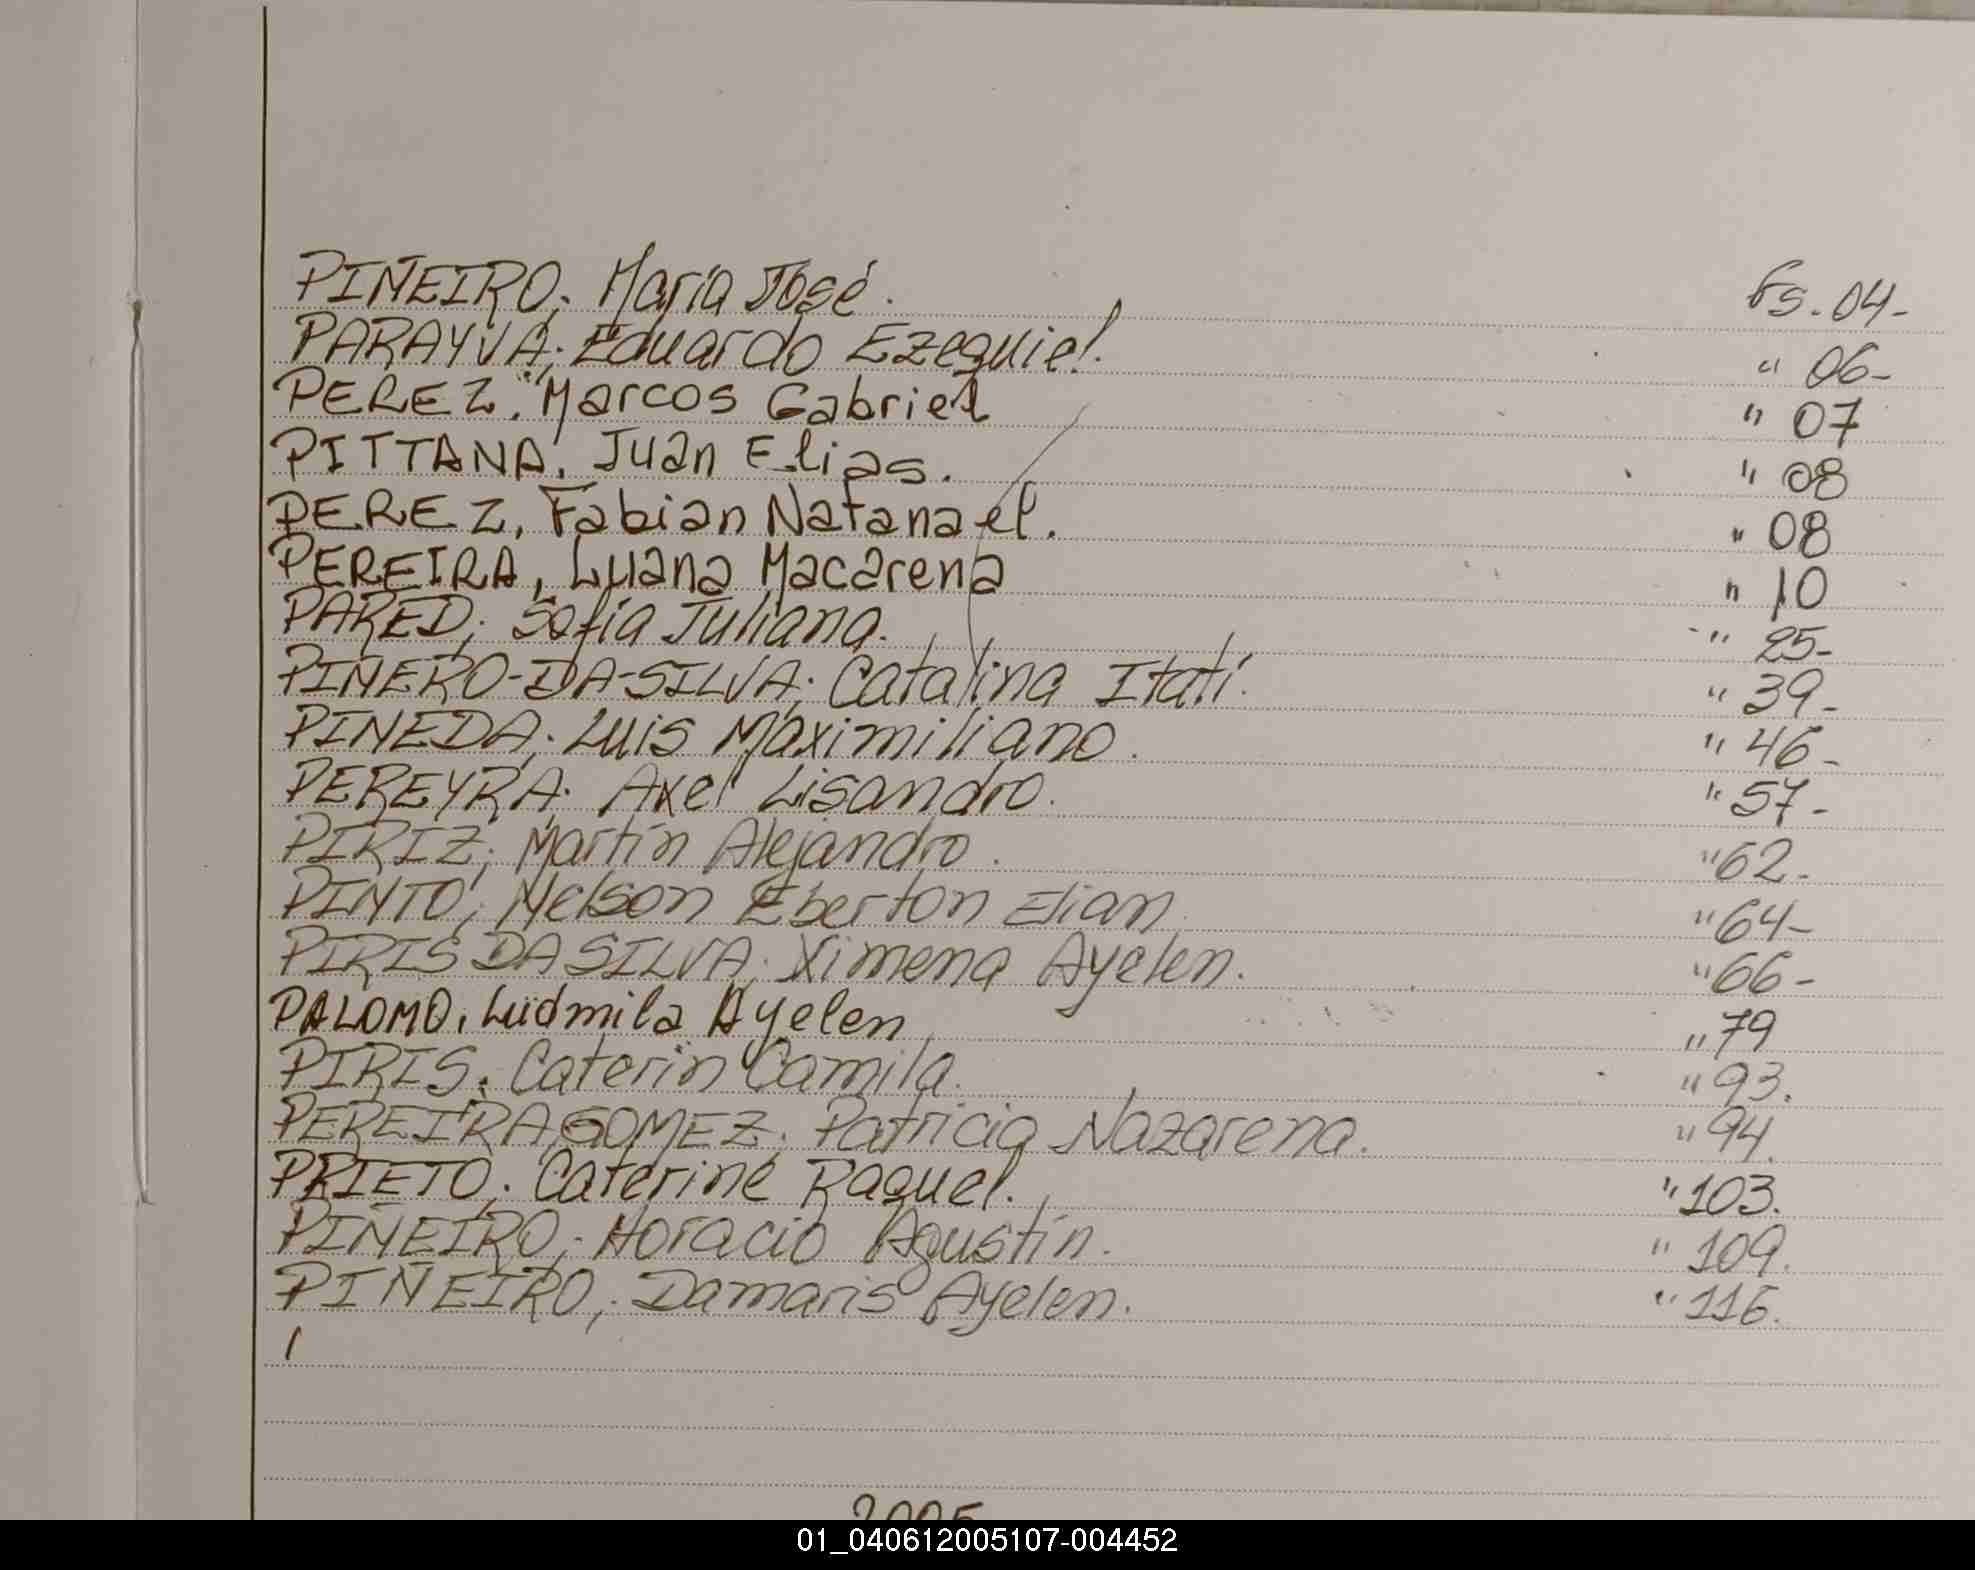 PIÑEIRO; María José. Fs. 04-
PARAYVA; Eduardo Ezequiel. " 06-
PEREZ, Marcos Gabriel " 07
PITTANA, Juan Elias. " 08
PEREZ, Fabian Natanael. " 08
PEREIRA, Luana Macarena " 10
PARED; Sofía Juliana. " 25-
PIÑERO-DA-SILVA; Catalina Itatí. " 39-
PINEDA; Luis Maximiliano. " 46-
PEREYRA; Axel Lisandro. " 57-
PIRIZ; Martín Alejandro. " 62-
PINTO; Nelson Eberton Elian " 64-
PIRIS DA SILVA; Ximena Ayelen. " 66-
PALOMO, Ludmila Ayelen " 79
PIRIS; Caterin Camila. " 93.
PEREIRA GOMEZ; Patricia Nazarena. " 94.
PRIETO; Caterine Raquel. " 103.
PIÑEIRO; Horacio Agustín. " 109.
PIÑEIRO; Damaris Ayelen. " 116.
2005
01_040612005107-004452